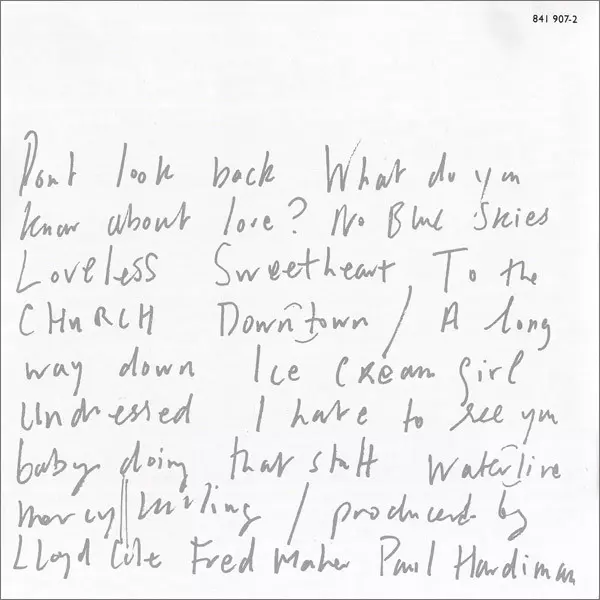 841 907-2
Dont look back What do you
know about love? No Blue Skies
Loveless Sweetheart To the
CHURCH Downtown / A long
way down Ice Cream Girl
Undressed I hate to see you
baby doing that stuff Waterline
mercy killing / produced by
Lloyd Cole Fred Maher Paul Hardiman